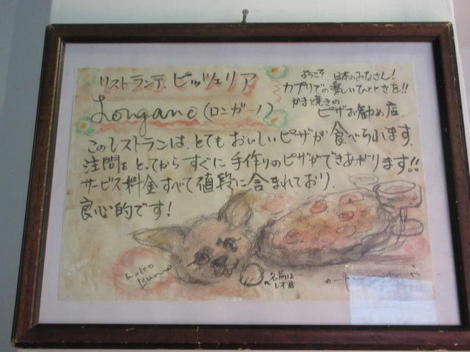 リストランテ. ピッツェリア
Longano (ロンガーノ)
ようこそ 日本のみなさん!
カプリでの楽しいひとときを!!
かま焼きの
ピザお勧め店
このレストランは、とてもおいしいピザが食べられます.
注問をとってからすぐに手作りのピザができあがります!!
サービス料金すべて値段に含まれており.
良心的です!
名前は